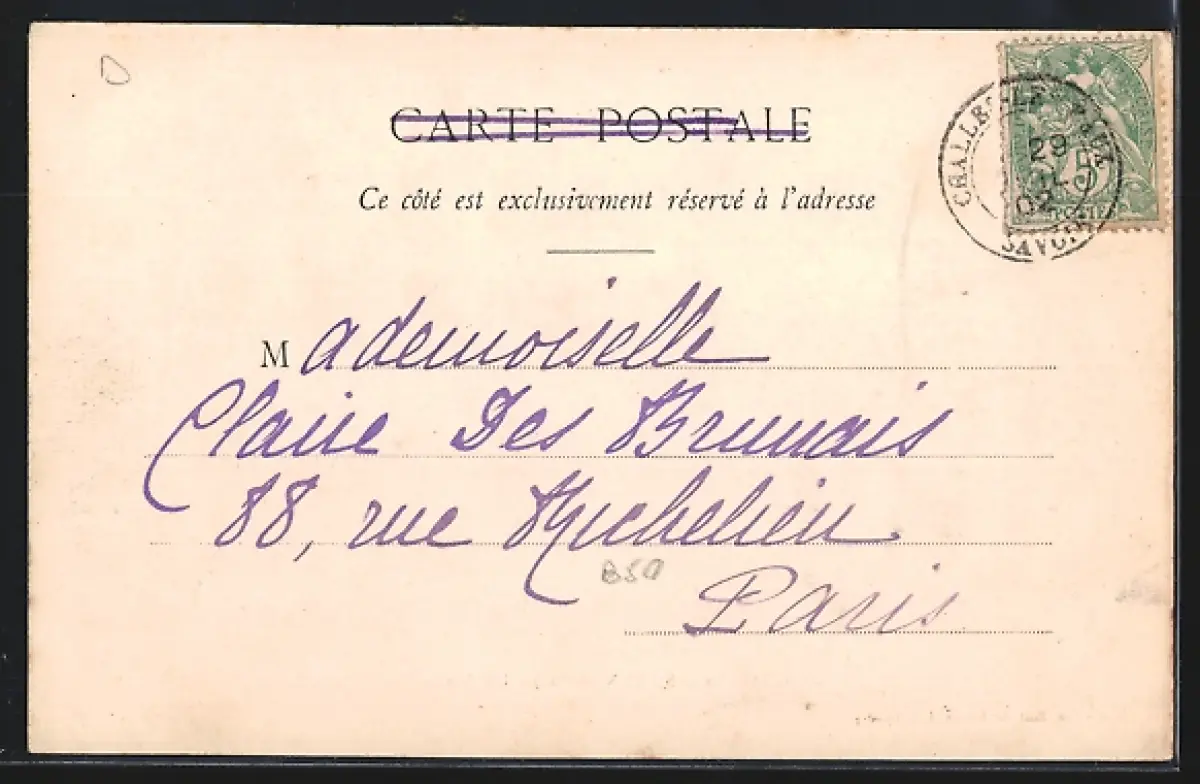 CARTE POSTALE
Ce côté est exclusivement réservé à l'adresse
CHALLES-LES-EAUX
29
02
SAVOIE
5
POSTE
Mademoiselle
Claire Des Brumais
88, rue Richelieu
Paris